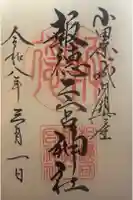 小田原城
報徳二宮神社
令和八年 三月一日